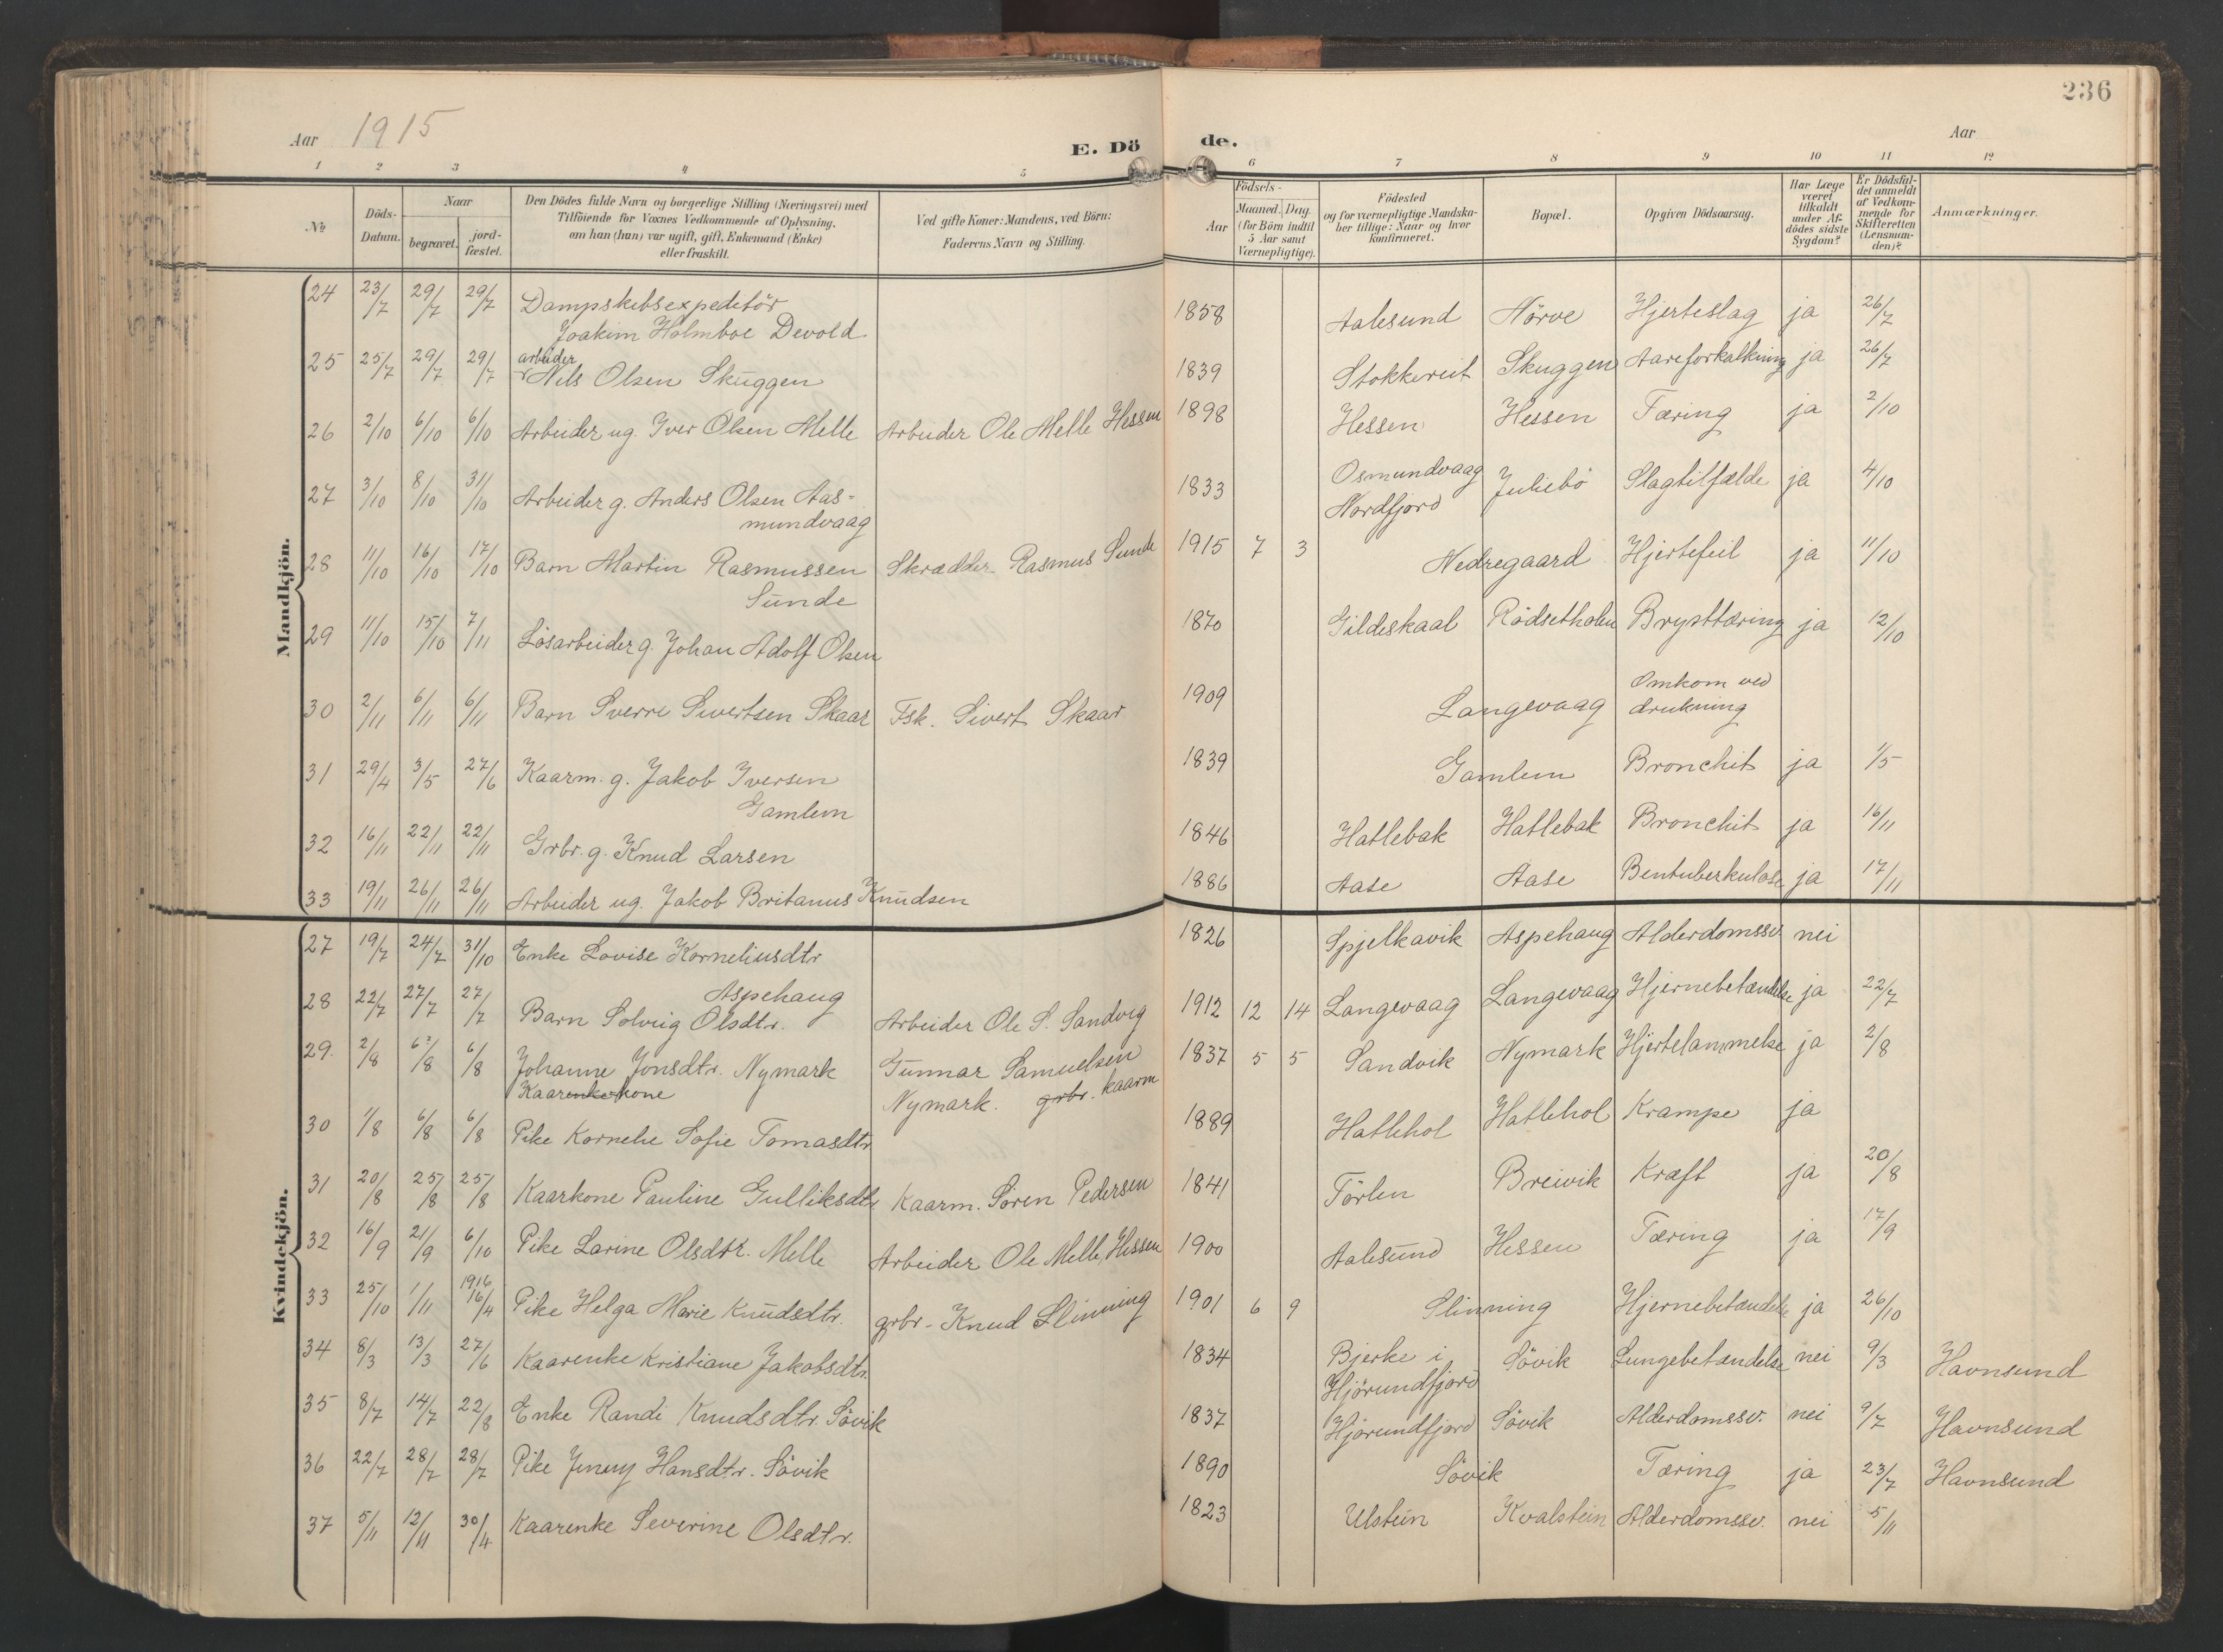 236
Aar 1915
E. Döde.
Aar
1 2 3 4 5 6 7 8 9 10 11 12
№
Döds-Datum.
Naar
begravet.
jord-fæstet.
Den Dödes fulde Navn og borgerlige Stilling (Næringsvei) med
Tilföiende for Voxnes Vedkommende af Oplysning,
om han (hun) var ugift, gift, Enkemand (Enke)
eller fraskilt.
Ved gifte Koner: Mandens, ved Börn:
Faderens Navn og Stilling.
Födsels-
Aar
Maaned. Dag.
(for Börn indtil
5 Aar samt
Værnepligtige).
Födested
og for værnepligtige Mandska-
ber tillige: Naar og hvor
konfirmeret.
Bopæl.
Opgiven Dödsaarsag.
Har Læge
været
tilkaldt
under Af-
dödes sidste
Sygdom?
Er Dödsfal-
det anmeldt
af Vedkom-
mende for
Skifteretten
(Lensman-
den)?
Anmærkninger.
Mandkjön.
24 23/7 29/7 29/7 Dampskibsexpeditör 1858 Aalesund Nörve Hjerteslag ja 26/7
Joakim Holmboe Devold
arbeider
25 25/7 29/7 29/7 Nils Olsen Skuggen 1839 Stokkereit Skuggen Aareforkalkning ja 26/7
26 2/10 6/10 6/10 Arbeider ug. Iver Olsen Melle Arbeider Ole Melle Hessen 1898 Hessen Hessen Tæring ja 2/10
27 3/10 8/10 31/10 Arbeider g. Anders Olsen Aas- 1833 Osmundvaag Juliebö Slagtilfælde ja 4/10
mundvaag Nordfjord
28 11/10 16/10 17/10 Barn Martin Rasmussen Skrædder Rasmus Sunde 1915 7 3 Nedregaard Hjertefeil ja 11/10
Sunde
29 11/10 15/10 7/11 Lösarbeider g. Johan Adolf Olsen 1870 Gildeskaal Rödsetholen Brysttæring ja 12/10
30 2/11 6/11 6/11 Barn Sverre Sivertsen Skaar Fsk. Sivert Skaar 1909 Langevaag Omkom ved
drukning
31 29/4 3/5 27/6 Kaarm. g. Jakob Iversen 1839 Gamlem Bronchit ja 1/5
Gamlem
32 16/11 22/11 22/11 Grbr. g. Knud Larsen 1846 Hatlebak Hatlebak Bronchit ja 16/11
33 19/11 26/11 26/11 Arbeider ug. Jakob Britanus Knudsen 1886 Aase Aase Bentuberkulose ja 17/11
Kvindekjön.
27 19/7 24/7 31/10 Enke Lovise Korneliusdtr 1826 Spjelkavik Aspehaug Alderdomssv. nei
Aspehaug
28 22/7 27/7 27/7 Barn Solveig Olsdtr. Arbeider Ole S. Sandvig 1912 12 14 Langevaag Langevaag Hjernebetændelse ja 22/7
29. 2/8 6/8 6/8 Johanne Jonsdtr. Nymark Gunnar Samuelsen 1837 5 5 Sandvik Nymark Hjertelammelse ja 2/8
Kaarenkekone Nymark. grbr. kaarm
30 1/8 6/8 6/8 Pike Kornelie Sofie Tomasdtr 1889 Hatlehol Hatlehol Krampe ja
31 20/8 25/8 25/8 Kaarkone Pauline Gulliksdtr. Kaarm. Sören Pedersen 1841 Törlen Breivik Kræft ja 20/8
32 16/9 21/9 6/10 Pike Larine Olsdtr. Melle Arbeider Ole Melle, Hessen 1900 Aalesund Hessen Tæring ja 17/9
33 25/10 1/11 1916 16/4 Pike Helga Marie Knudsdtr. grbr. Knud Slinning 1901 6 9 Slinning Hjernebetændelse ja 26/10
34 8/3 13/3 27/6 Kaarenke Kristiane Jakobsdtr. 1834 Bjerke i Sövik Lungebetændelse nei 9/3 Havnsund
Hjörundfjord
35 8/7 14/7 22/8 Enke Randi Knudsdtr. Sövik 1837 Hjörundfjord Sövik Alderdomssv. nei 9/7 Havnsund
36 22/7 28/7 28/7 Pike Jenny Hansdtr. Sövik 1890 Sövik Tæring ja 23/7 Havnsund
37 5/11 12/11 30/4 Kaarenke Severine Olsdtr. 1823 Ulstein Kvalstein Alderdomssv. nei 5/11